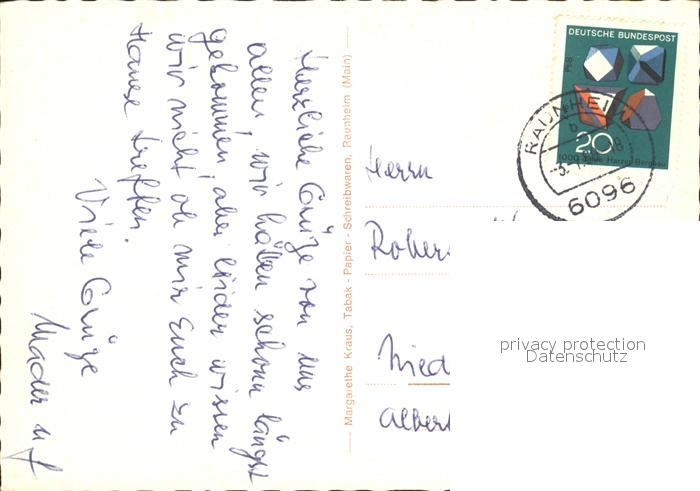 Herzliche Grüße von uns
allen, wir hätten schon längst
gekommen, aber leider wissen
wir nicht ob wir Euch zu
Hause treffen.
Viele Grüße
Mader u f
Margarethe Kraus, Tabak - Papier - Schreibwaren, Raunheim (Main)
DEUTSCHE BUNDESPOST
1968
20
1000 Jahre Harzer Bergbau
RAUNHEIM
a
6096
Herrn
Rober
Nied
Albert
privacy protection
Datenschutz